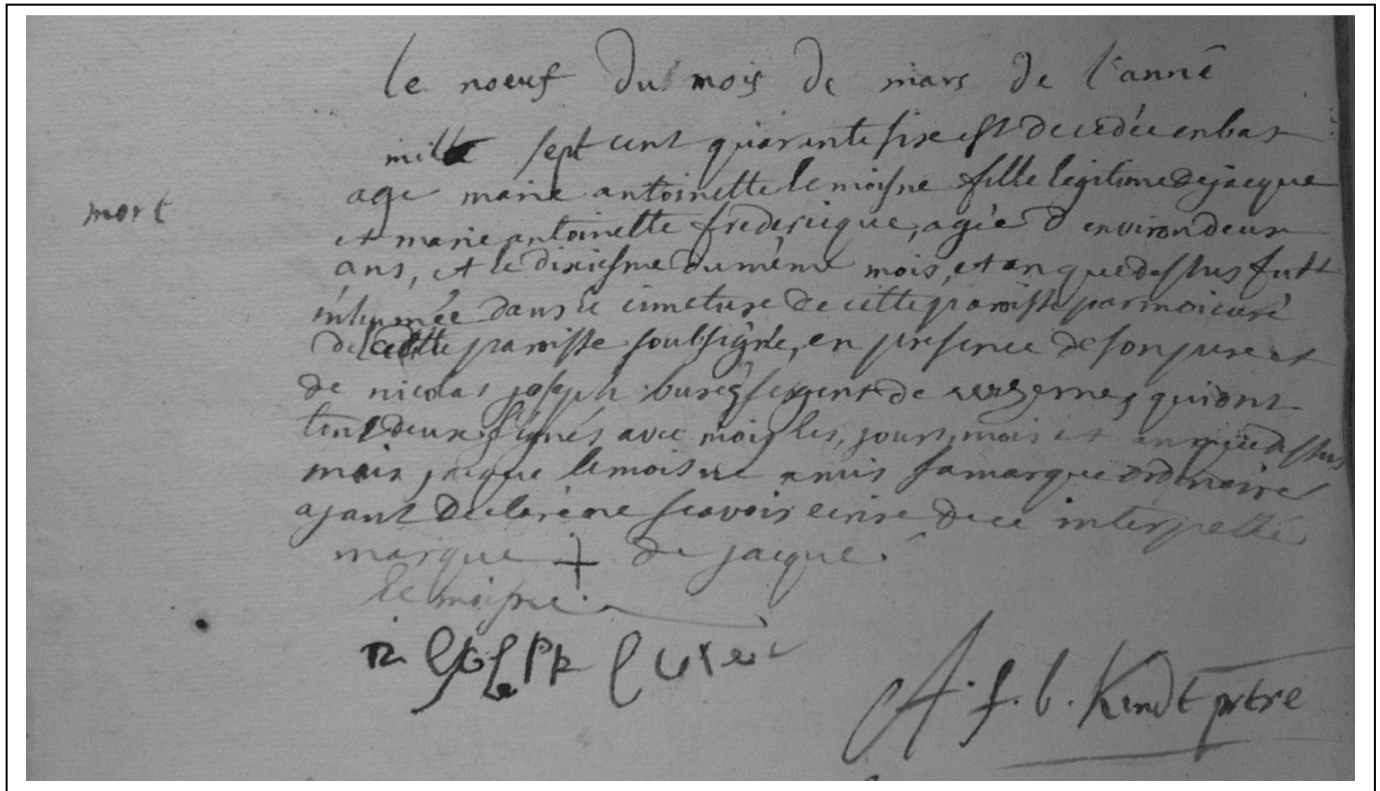 le noeuf du mois de mars de l'année
mille sept cent quarante sixe est decedée en bas
mort
age marie antoinette lemoisne fille legitime de jacque
et marie antoinette frederique, agée d'environ deux
ans, et le dixiesme du même mois, et an que dessus futt
inhumée dans le cimetiere de cette paroisse par moi curé
de cette paroisse soubsigné, en presence de son pere et
de nicolas joseph sergent de qui ont
tous deux signés avec moi les, jours, mois et an que dessus
mais jacque lemoisne a mis sa marque ordinaire
ajant declaré ne scavoir ecrire de ce interpellé
marque + de jacque
le moisne
A. f. b. Kindt prtre